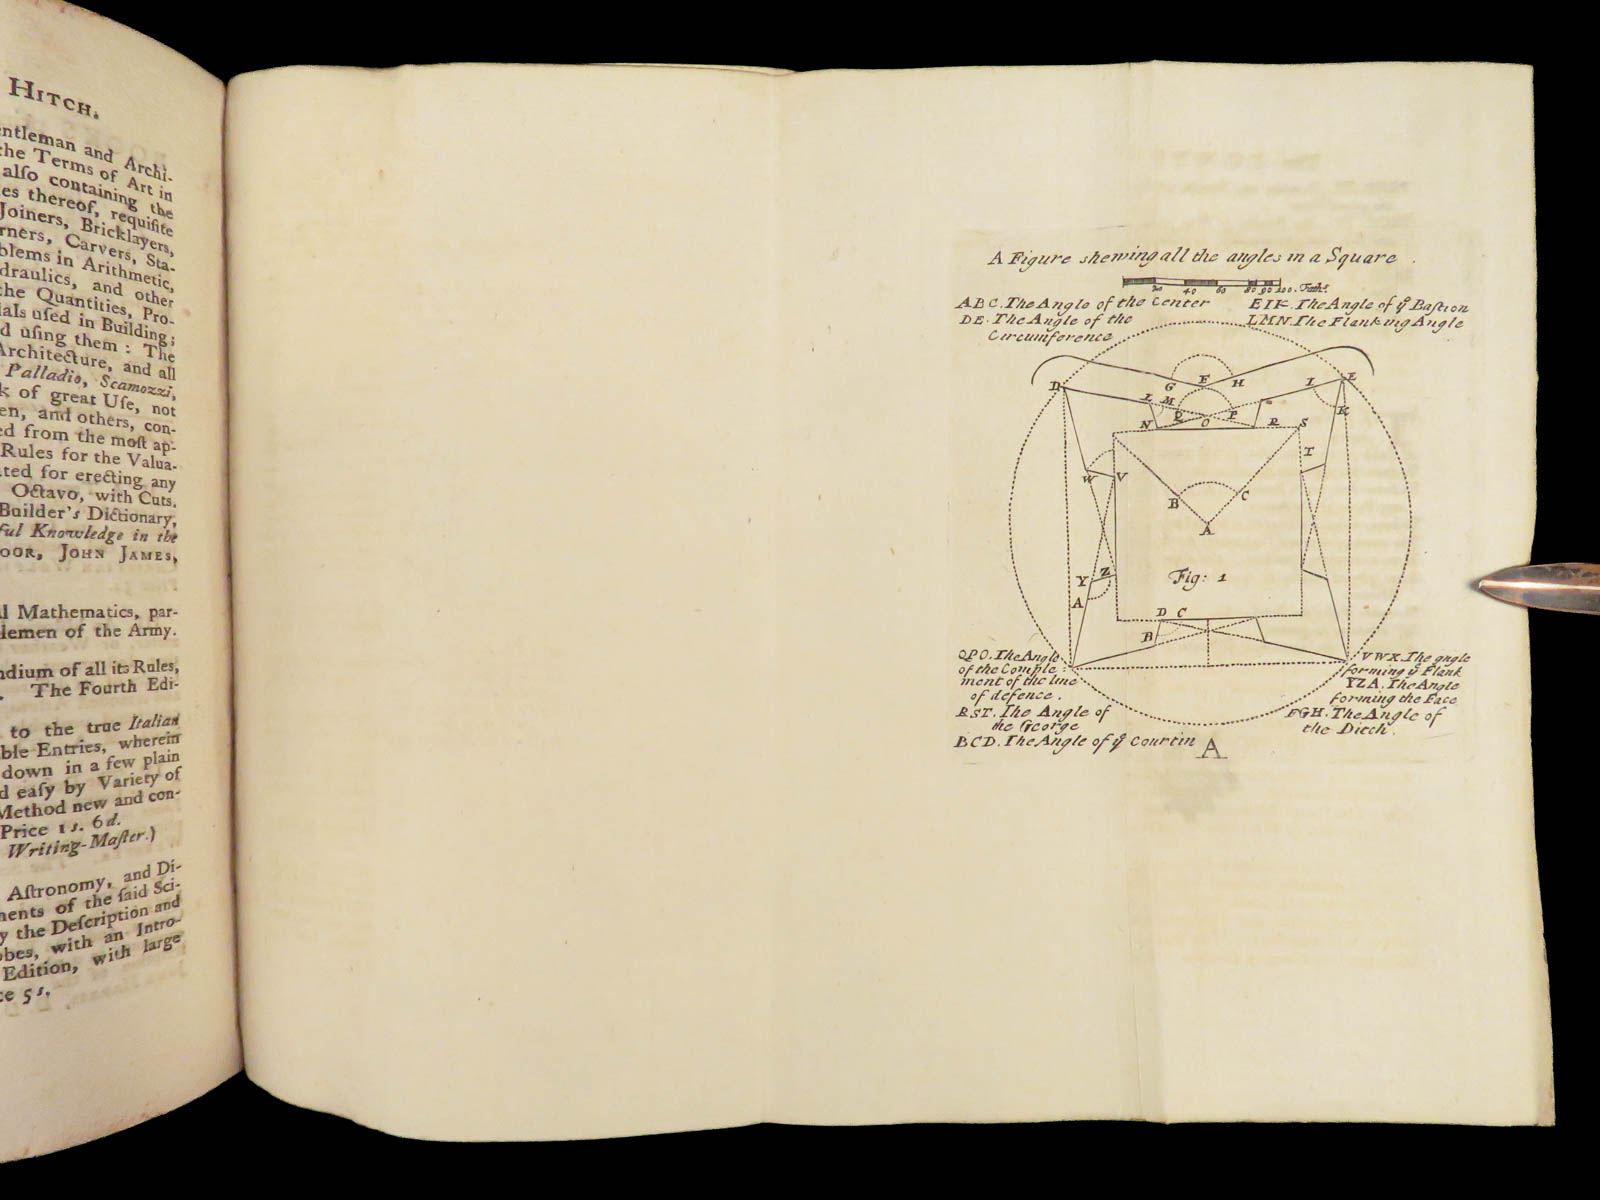 HITCH.
entleman and Archi-
the Terms of Art in
alſo containing the
es thereof, requiſite
Joiners, Bricklayers,
rners, Carvers, Sta-
blems in Arithmetic,
draulics, and other
the Quantities, Pro-
ials uſed in Building;
d uſing them: The
Architecture, and all
Palladio, Scamozzi,
k of great Uſe, not
en, and others, con-
ed from the moſt ap-
Rules for the Valua-
ated for erecting any
Octavo, with Cuts.
Builder's Dictionary,
ful Knowledge in the
OOR, JOHN JAMES,
al Mathematics, par-
lemen of the Army.
ndium of all its Rules,
The Fourth Edi-
to the true Italian
ble Entries, wherein
down in a few plain
d eaſy by Variety of
Method new and con-
Price 1 s. 6d.
Writing-Maſter.)
Aſtronomy, and Di-
ments of the ſaid Sci-
y the Deſcription and
obes, with an Intro-
Edition, with large
ce 5 s.
A Figure shewing all the angles in a Square.
20 40 60 80 90 100. Fath.
ABC. The Angle of the Center
DE. The Angle of the
Circumference
EIK. The Angle of ye Bastion
LMN. The Flanking Angle
D G F H I E
L M K
Q P
N O R S
W V T
B C
A
Y Z
A
Fig: 1
D C
B
QPO. The Angle
of the Comple
ment of the line
of defence.
RST. The Angle of
the Gorge
BCD. The Angle of ye Courtin
VWX. The angle
forming ye Flank
YZA. The Angle
forming the Face
FGH. The Angle of
the Ditch.
A